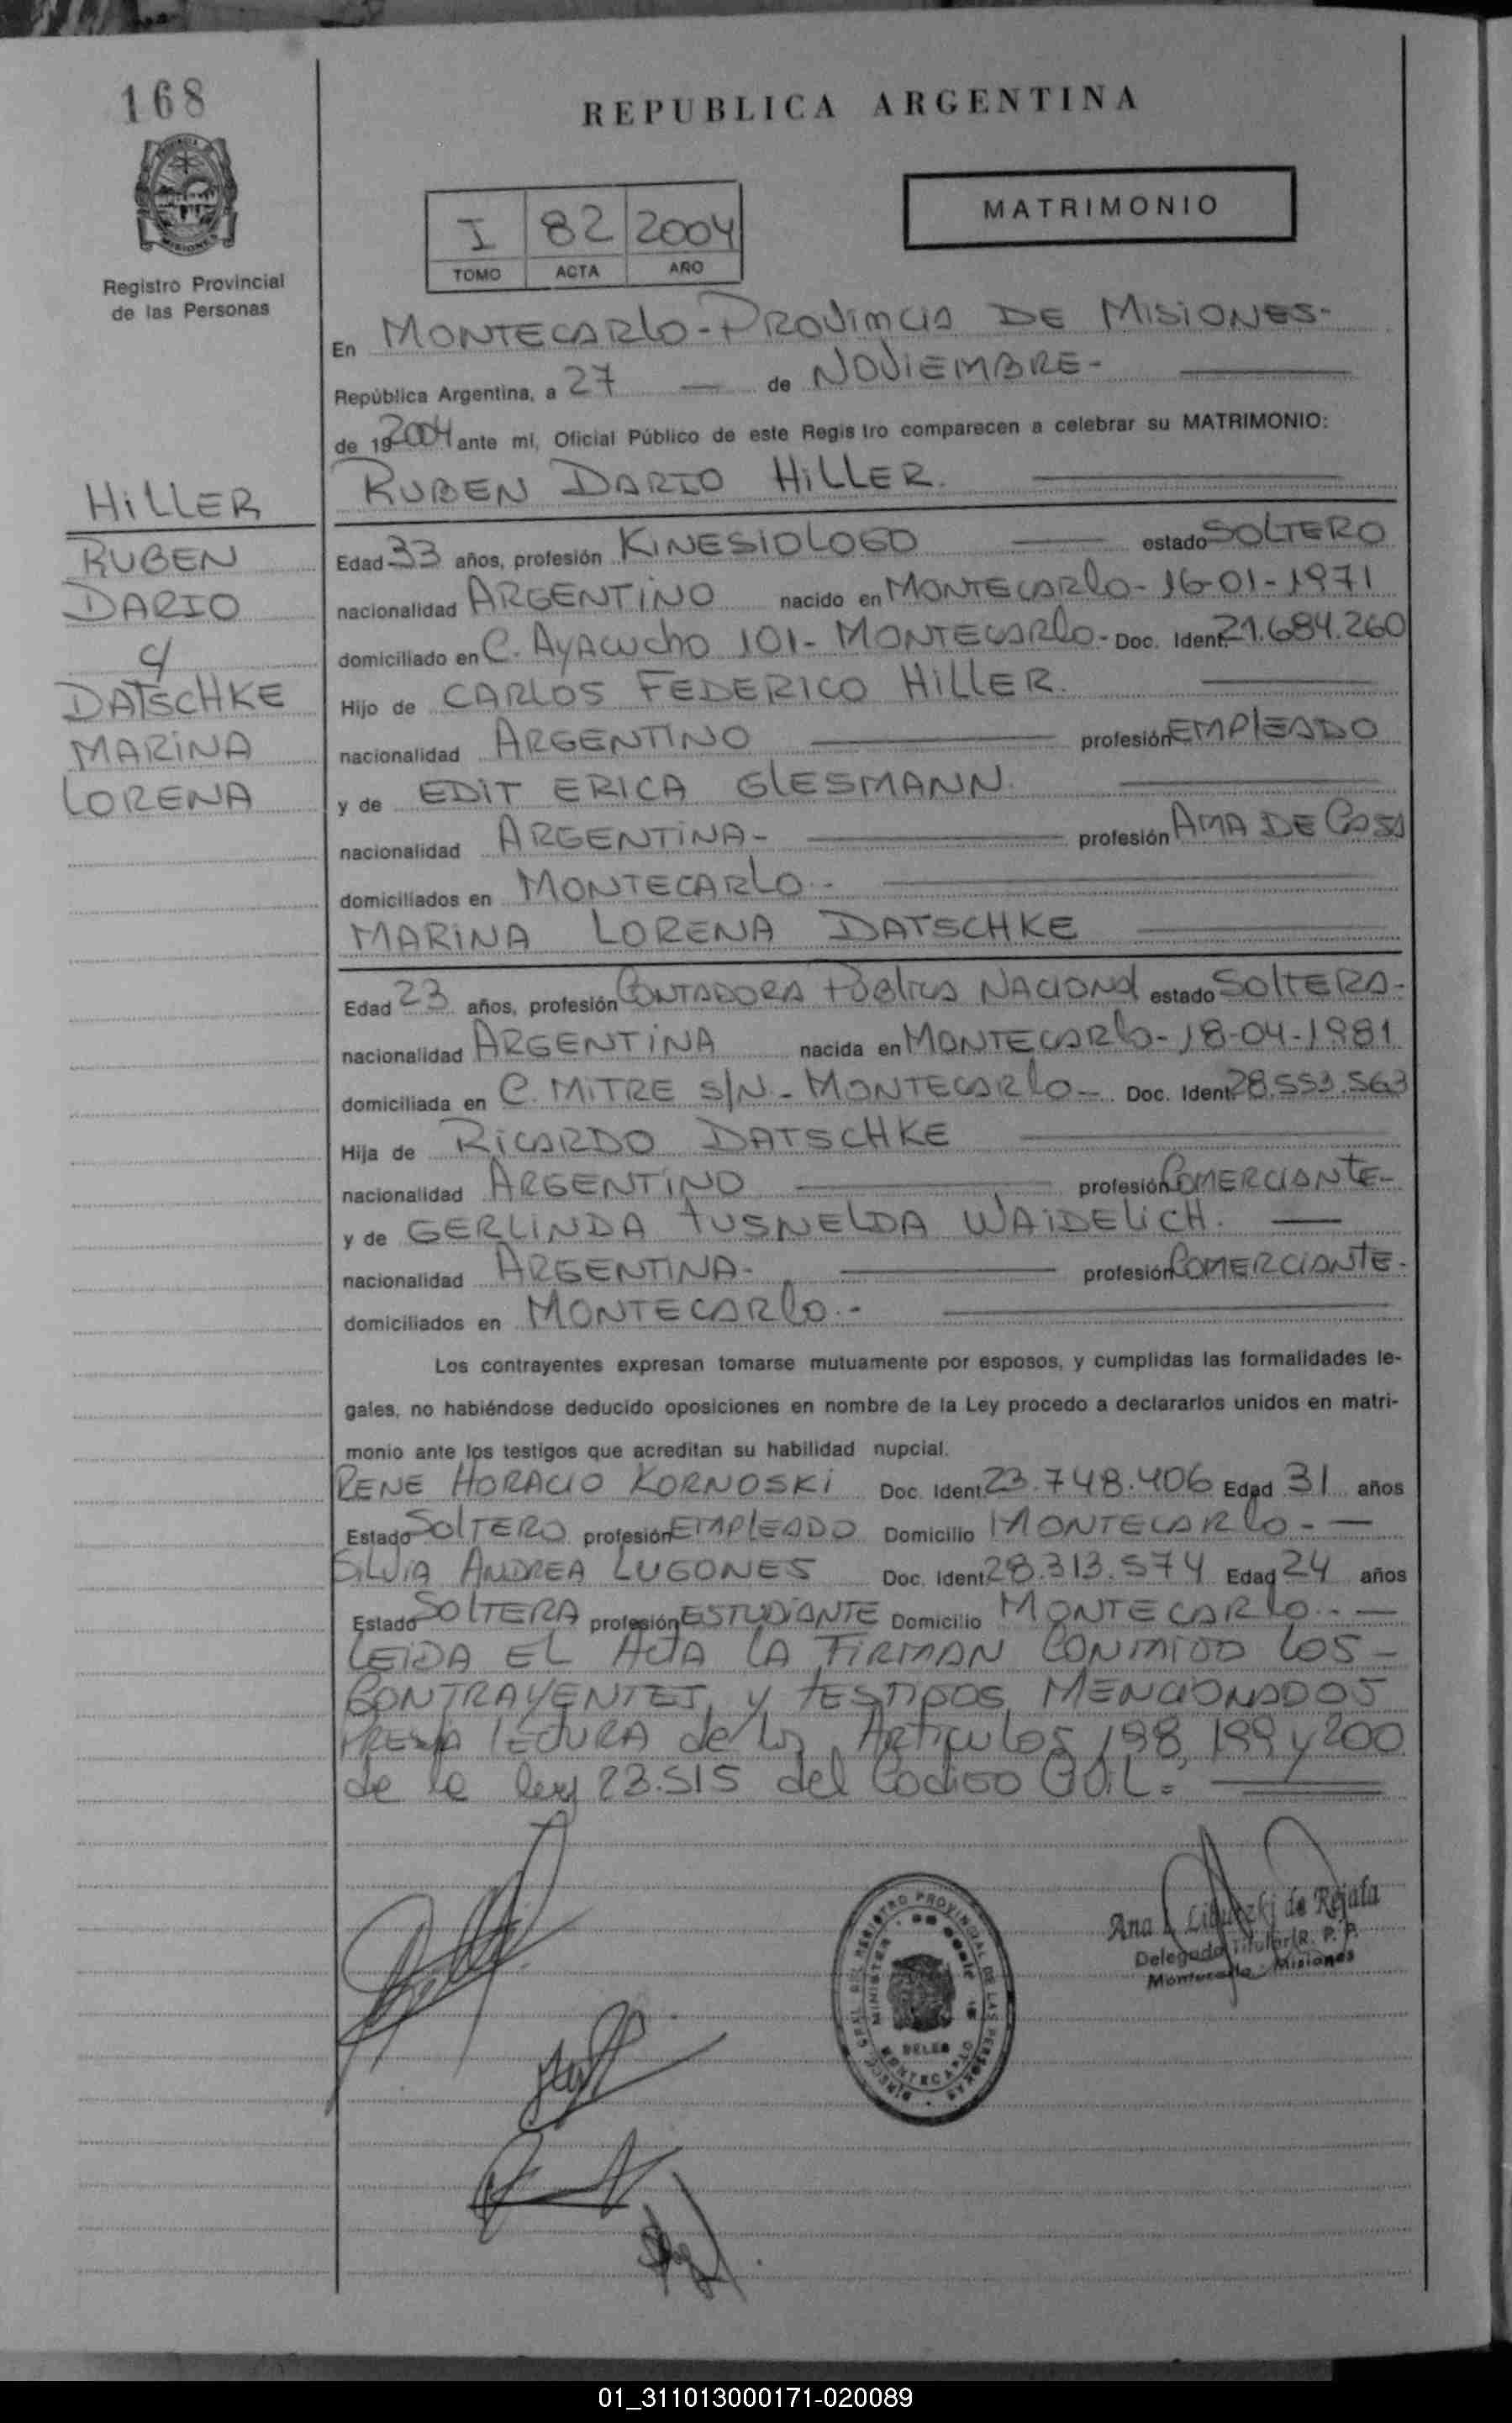 168
REPUBLICA ARGENTINA
MATRIMONIO
I 82 2004
TOMO ACTA AÑO
Registro Provincial
de las Personas
En MONTECARLO - PROVINCIA DE MISIONES-
República Argentina, a 27 — de NOVIEMBRE-
de 19 2004 ante mí, Oficial Público de este Registro comparecen a celebrar su MATRIMONIO:
RUBEN DARIO HILLER.
HILLER
RUBEN
DARIO
c/
DATSCHKE
MARINA
LORENA
Edad 33 años, profesión KINESIOLOGO estado SOLTERO
nacionalidad ARGENTINO nacido en MONTECARLO- 16-01-1971
domiciliado en C. AYACUCHO 101- MONTECARLO- Doc. Ident. 21.684.260
Hijo de CARLOS FEDERICO HILLER.
nacionalidad ARGENTINO profesión EMPLEADO
y de EDIT ERICA GLESMANN.
nacionalidad ARGENTINA- profesión AMA DE CASA
domiciliados en MONTECARLO.-
MARINA LORENA DATSCHKE
Edad 23 años, profesión CONTADORA PUBLICA NACIONAL estado SOLTERA-
nacionalidad ARGENTINA nacida en MONTECARLO- 18-04-1981
domiciliada en C. MITRE S/N.- MONTECARLO- Doc. Ident. 28.553.563
Hija de RICARDO DATSCHKE
nacionalidad ARGENTINO profesión COMERCIANTE-
y de GERLINDA TUSNELDA WAIDELICH.
nacionalidad ARGENTINA- profesión COMERCIANTE-
domiciliados en MONTECARLO.-
Los contrayentes expresan tomarse mutuamente por esposos, y cumplidas las formalidades le-
gales, no habiéndose deducido oposiciones en nombre de la Ley procedo a declararlos unidos en matri-
monio ante los testigos que acreditan su habilidad nupcial.
RENE HORACIO KORNOSKI Doc. Ident. 23.748.406 Edad 31 años
Estado SOLTERO profesión EMPLEADO Domicilio MONTECARLO-
SILVIA ANDREA LUGONES Doc. Ident. 28.313.574 Edad 24 años
Estado SOLTERA profesión ESTUDIANTE Domicilio MONTECARLO..-
LEIDA EL ACTA LA FIRMAN CONMIGO LOS-
CONTRAYENTES, Y TESTIGOS MENCIONADOS
PREVIA LECTURA de los Articulos 198, 199 y 200
de la ley 23.515 del Codigo CIVIL=
Ana de Rejala
Delegada Titular R. P. P.
Montecarlo - Misiones
REGISTRO PROVINCIAL DE LAS PERSONAS
MONTECARLO
01_311013000171-020089